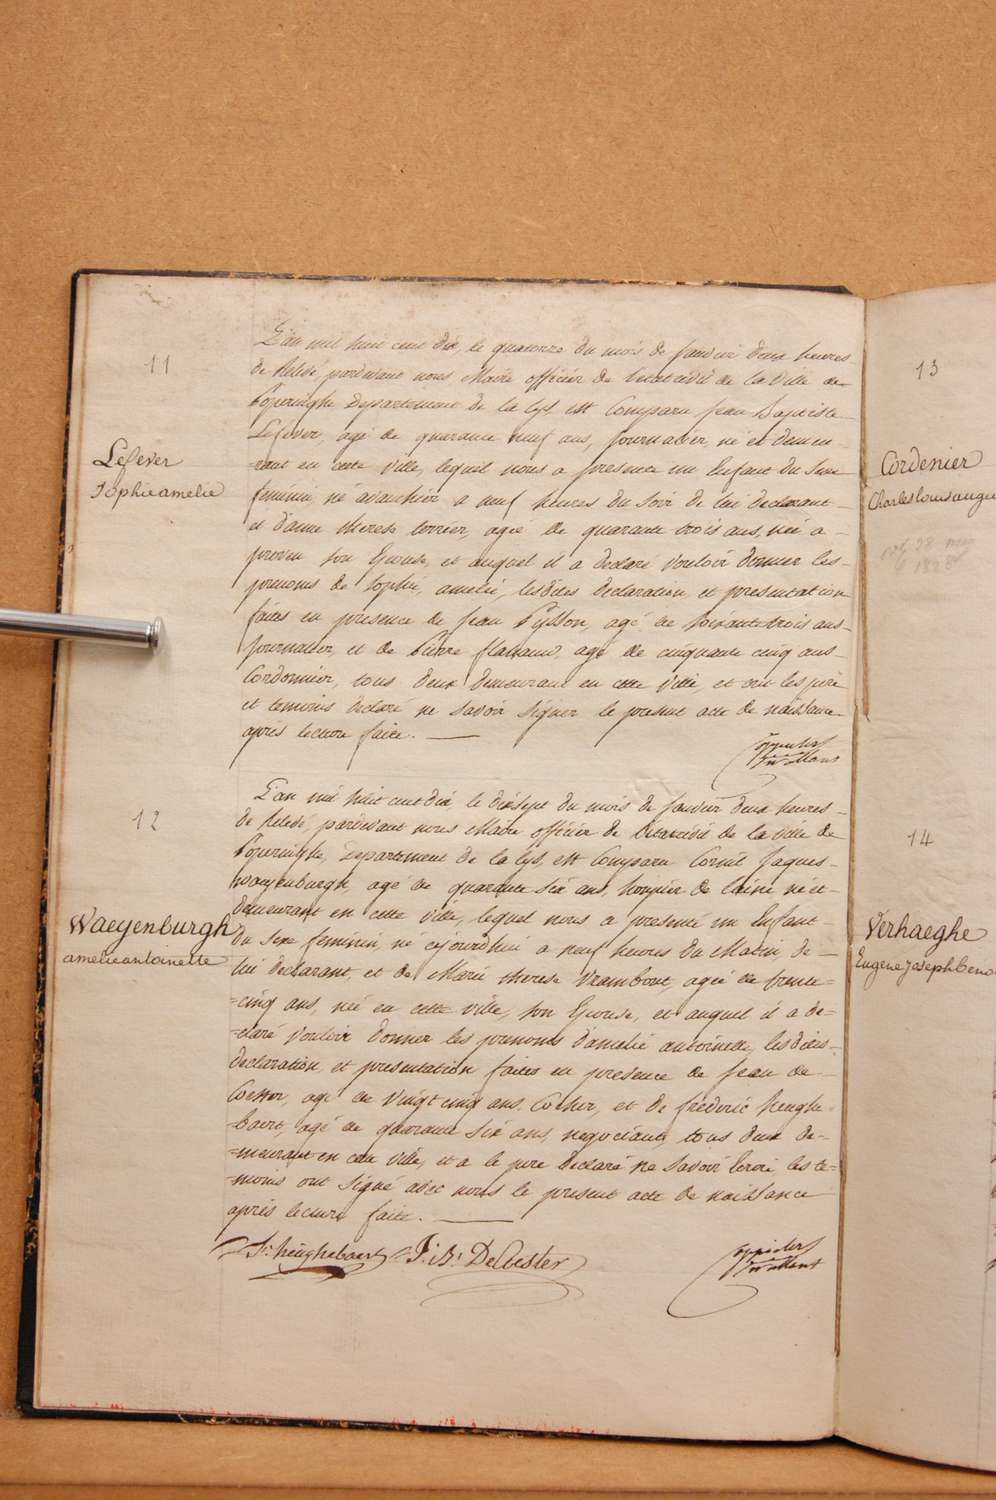 11
Lefever
Sophie amelie
L'an mil huit cent dix, le quatorze du mois de janvier deux heures
de Relevé, pardevant nous Maire officier de l'etat civil de la Ville de
Poperinghe Departement de la Lys, est Comparu Jean Baptiste
Lefever, agé de quarante neuf ans, journalier, né et demeu-
=rant en cette ville, lequel nous a presenté un Enfant du Sexe
feminin, né avanthier a neuf heures du Soir de lui declarant
et d'anne therese terrier, agée de quarante trois ans, née a
proven son Epouse, et auquel il a declaré Vouloir donner les
prenoms de Sophie, amelie, lesdites declaration et presentation
faites en presence de Jean Pysson, agé de Soixante trois ans
journalier, et de Pierre agé de cinquante cinq ans
Cordonnier, tous deux demeurant en cette Ville, et ont les pere
et temoins declaré ne Savoir Signer le present acte de naissance
après lecture faite.
12
Waeyenburgh
amelie antoinette
L'an mil huit cent dix, le dixsept du mois de janvier deux heures
de Relevé, pardevant nous Maire officier de l'etat civil de la Ville de
Poperinghe, Departement de la Lys, est Comparu Cornil Jaques
waeyenburgh, agé de quarante Six ans, de laine né et
demeurant en cette ville, lequel nous a presenté un Enfant
du Sexe feminin, né cejourdhui a neuf heures du Matin, de
lui declarant et de Marie therese Vrambout, agée de trente
=cinq ans, née en cette ville, Son Epouse, et auquel il a de-
=claré Vouloir donner les prenoms d'amelie antoinette, lesdites
declaration et presentation faites en presence de Jean de
Coester, agé de Vingt cinq ans, Cocher, et de frederic heughe
baert, agé de quarante Six ans, negociant, tous deux de-
=meurant en cette ville, et a le pere declaré ne Savoir Ecrire les te-
=moins ont Signé avec nous le present acte de naissance
après lecture faite.
fr: heughebaert J: B: DeCuester
13
Cordenier
Charles louis augu
28
1828
14
Verhaeghe
Eugene Joseph Beno